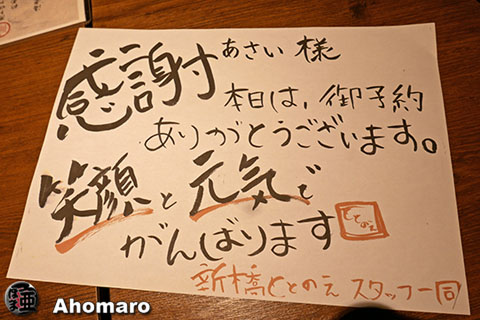 感謝 あさい 様
本日は、御予約
ありがとうございます。
笑顔と元気で
がんばります
ととのえ
新橋ととのえ スタッフ一同
Ahomaro